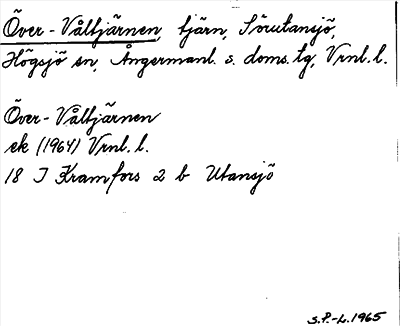 Över-Våltjärnen, tjärn, Sörutansjö,
Högsjö sn, Ångermanl. s. doms. tg, Vrnl. l.
Över-Våltjärnen
ek (1964) Vrnl. l.
18 I Kramfors 2 b Utansjö
S.P.-L. 1965